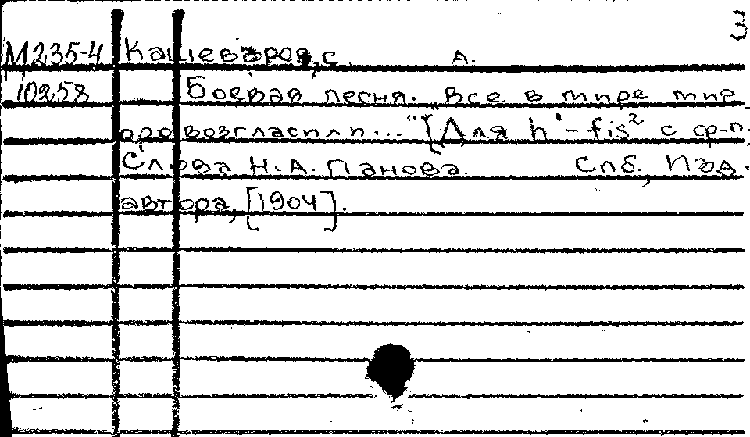 3
М235-4 Кашеваров, С. А.
10258 Боевая песня. „Все в мире мир
провозгласили..." [Для h¹-fis² с ф-п.
Слова Н.А. Панова Спб., Изд.
автора, [1904].